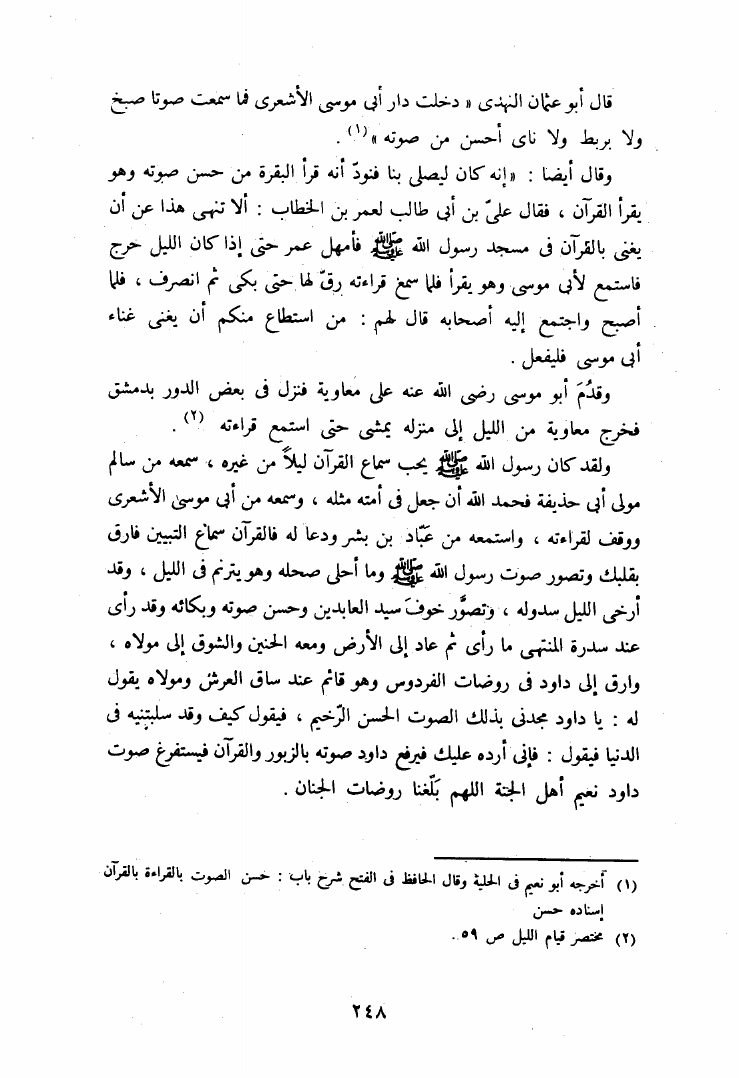 قال أبو عثمان النهدى « دخلت دار أبى موسى الأشعرى فما سمعت صوتا صبخ
ولا بربط ولا ناى أحسن من صوته »(١) .
وقال أيضا : « إنه كان ليصلى بنا فنودّ أنه قرأ البقرة من حسن صوته وهو
يقرأ القرآن ، فقال علىّ بن أبى طالب لعمر بن الخطاب : ألا تنهى هذا عن أن
يغنى بالقرآن فى مسجد رسول الله ﷺ فأمهل عمر حتى إذا كان الليل خرج
فاستمع لأبى موسى وهو يقرأ فلما سمغ قراءته رقّ لها حتى بكى ثم انصرف ، فلما
أصبح واجتمع إليه أصحابه قال لهم : من استطاع منكم أن يغنى غناء
أبى موسى فليفعل .
وقدُمَ أبو موسى رضى الله عنه على معاوية فنزل فى بعض الدور بدمشق
فخرج معاوية من الليل إلى منزله يمشى حتى استمع قراءته (٢) .
ولقد كان رسول الله ﷺ يحب سماع القرآن ليلاً من غيره ، سمعه من سالم
مولى أبى حذيفة فحمد الله أن جعل فى أمته مثله ، وسمعه من أبى موسىٰ الأشعرى
ووقف لقراءته ، واستمعه من عبّاد بن بشر ودعا له فالقرآن سماع التبيين فارق
بقلبك وتصور صوت رسول الله ﷺ وما أحلى صحله وهو يترنم فى الليل ، وقد
أرخى الليل سدوله ، وتصوَّر خوفَ سيد العابدين وحسن صوته وبكائه وقد رأى
عند سدرة المنتهى ما رأى ثم عاد إلى الأرض ومعه الحنين والشوق إلى مولاه ،
وارق إلى داود فى روضات الفردوس وهو قائم عند ساق العرش ومولاه يقول
له : يا داود مجدنى بذلك الصوت الحسن الرّخيم ، فيقول كيف وقد سلبتنيه فى
الدنيا فيقول : فإنى أرده عليك فيرفع داود صوته بالزبور والقرآن فيستفرغ صوت
داود نعيم أهل الجنة اللهم بَلّغنا روضات الجنان .
(١) أخرجه أبو نعيم فى الحلية وقال الحافظ فى الفتح شرح باب : حسن الصوت بالقراءة بالقرآن
إسناده حسن
(٢) مختصر قيام الليل ص ٥٩ .
٢٤٨